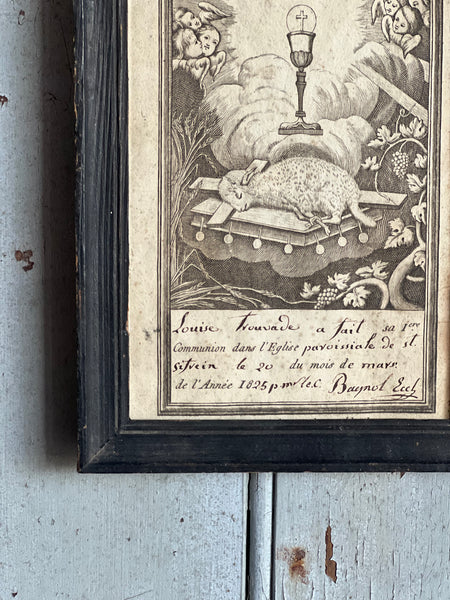 Louise Trouvade a fait sa 1ere
Communion dans l'Eglise paroissiale de st.
le 20 du mois de mars
de l'Année 1825 p mr le C.